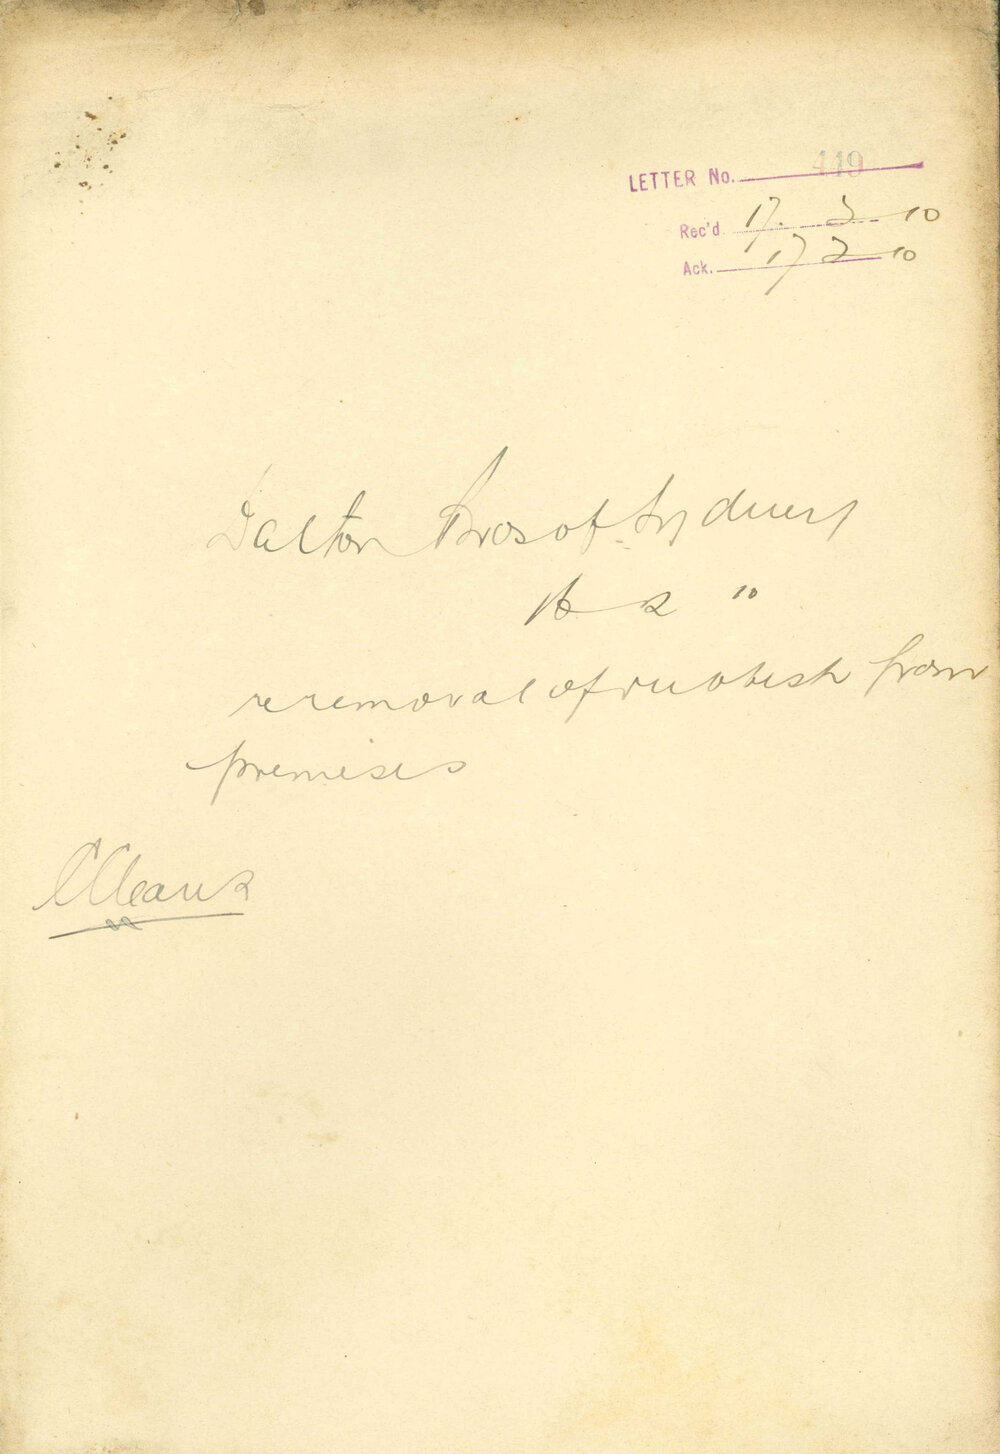 LETTER No. 449
Rec'd. 17. 2 10
Ack. 17 2 10
Dalton Bros of Sydney
16 2 10
re removal of rubbish from
premises